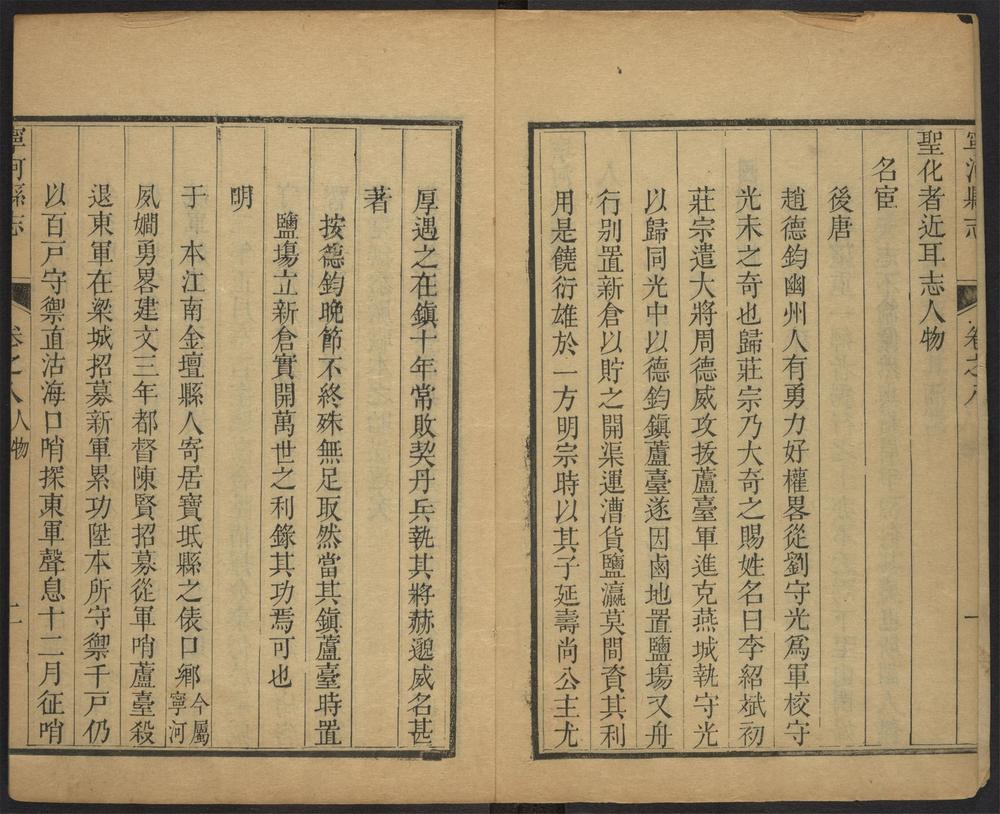 寧河縣志
卷之八
一
聖化者近耳志人物
名宦
後唐
趙德鈞幽州人有勇力好權畧從劉守光爲軍校守
光未之奇也歸莊宗乃大奇之賜姓名曰李紹斌初
莊宗遣大將周德威攻拔蘆臺軍進克燕城執守光
以歸同光中以德鈞鎭蘆臺遂因鹵地置鹽場又舟
行別置新倉以貯之開渠運漕貨鹽瀛莫間資其利
用是饒衍雄於一方明宗時以其子延壽尚公主尤
厚遇之在鎭十年常敗契丹兵執其將赫邈威名甚
著
按德鈞晚節不終殊無足取然當其鎭蘆臺時置
鹽場立新倉實開萬世之利錄其功焉可也
明
于 本江南金壇縣人寄居寶坻縣之俵口鄉今屬寧河
夙嫺勇畧建文三年都督陳賢招募從軍哨蘆臺殺
退東軍在梁城招募新軍累功陞本所守禦千戸仍
以百戸守禦直沽海口哨探東軍聲息十二月征哨
寧河縣志
卷之八人物
二